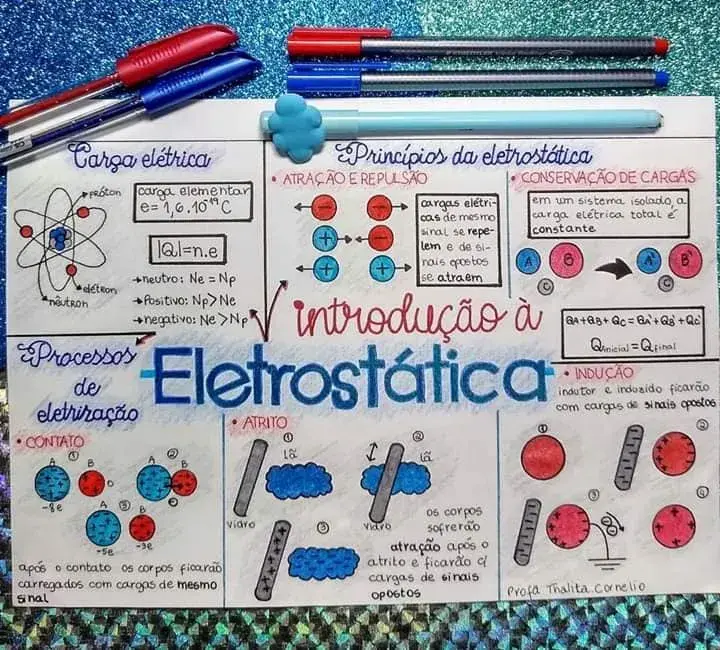 Carga elétrica
próton
elétron
nêutron
carga elementar
e= 1,6.10⁻¹⁹ C
|Q|=n.e
→neutro: Ne = Np
→Positivo: Np>Ne
→negativo: Ne>Np
Princípios da eletrostática
• ATRAÇÃO E REPULSÃO
cargas elétri-
cas de mesmo
sinal se repe-
lem e de si-
nais opostos
se atraem
• CONSERVAÇÃO DE CARGAS
em um sistema isolado, a
carga elétrica total é
constante
A B A' B'
C C
QA+QB+QC = QA'+QB'+QC'
Qinicial = Qfinal
introdução à
Eletrostática
Processos
de
eletrização
• CONTATO
① ②
A B A B
-8e 0
③
A B
-5e -3e
após o contato os corpos ficarão
carregados com cargas de mesmo
sinal
• ATRITO
① ②
lã lã
vidro vidro
③
os corpos
sofrerão
atração após o
atrito e ficarão c/
cargas de sinais
opostos
• INDUÇÃO
indutor e induzido ficarão
com cargas de sinais opostos
① ②
③ ④
Profa Thalita Cornelio